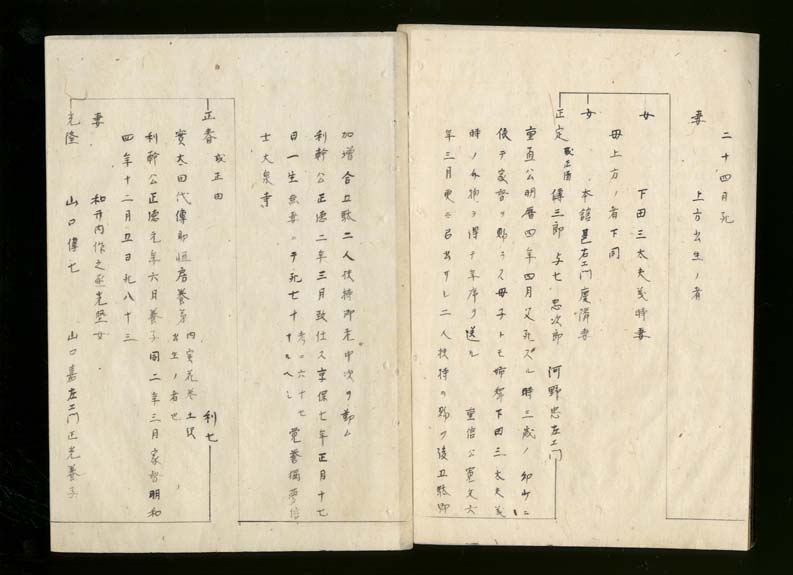 二十四日死
妻　上方出生ノ者
女　下田三太夫義時妻
母上方ノ者下同
女　本舘甚右エ門慶満妻
正定　或正清　傳三郎　与七　忠次郎　河野忠左エ門
重直公明暦四年四月父死ズル時三歳ノ幼少ニ
依テ家督ヲ賜ラス母子トモ姉聟下田三太夫義
時ノ介抱ヲ得テ年序ヲ送ル　重信公寛文六
年三月更ニ召出サレ二人扶持ヲ賜フ後五駄
加増合五駄二人扶持御先中次ヲ勤ム
利幹公正徳二年三月致仕ス享保七年正月十七
日一生無妻ニテ死七十
考ニ六十七ナルヘシ
覚誉獨夢
士大泉寺
正春　或正田　利七
實太田代傳助恒房養弟
内実花巻土沢出生ノ者也
利幹公正徳元年六月養子同二年三月家督明和
四年十二月五日死八十三
妻　和井内作之丞光堅女
光隆　山口傳七　山口嘉左エ門正光養子